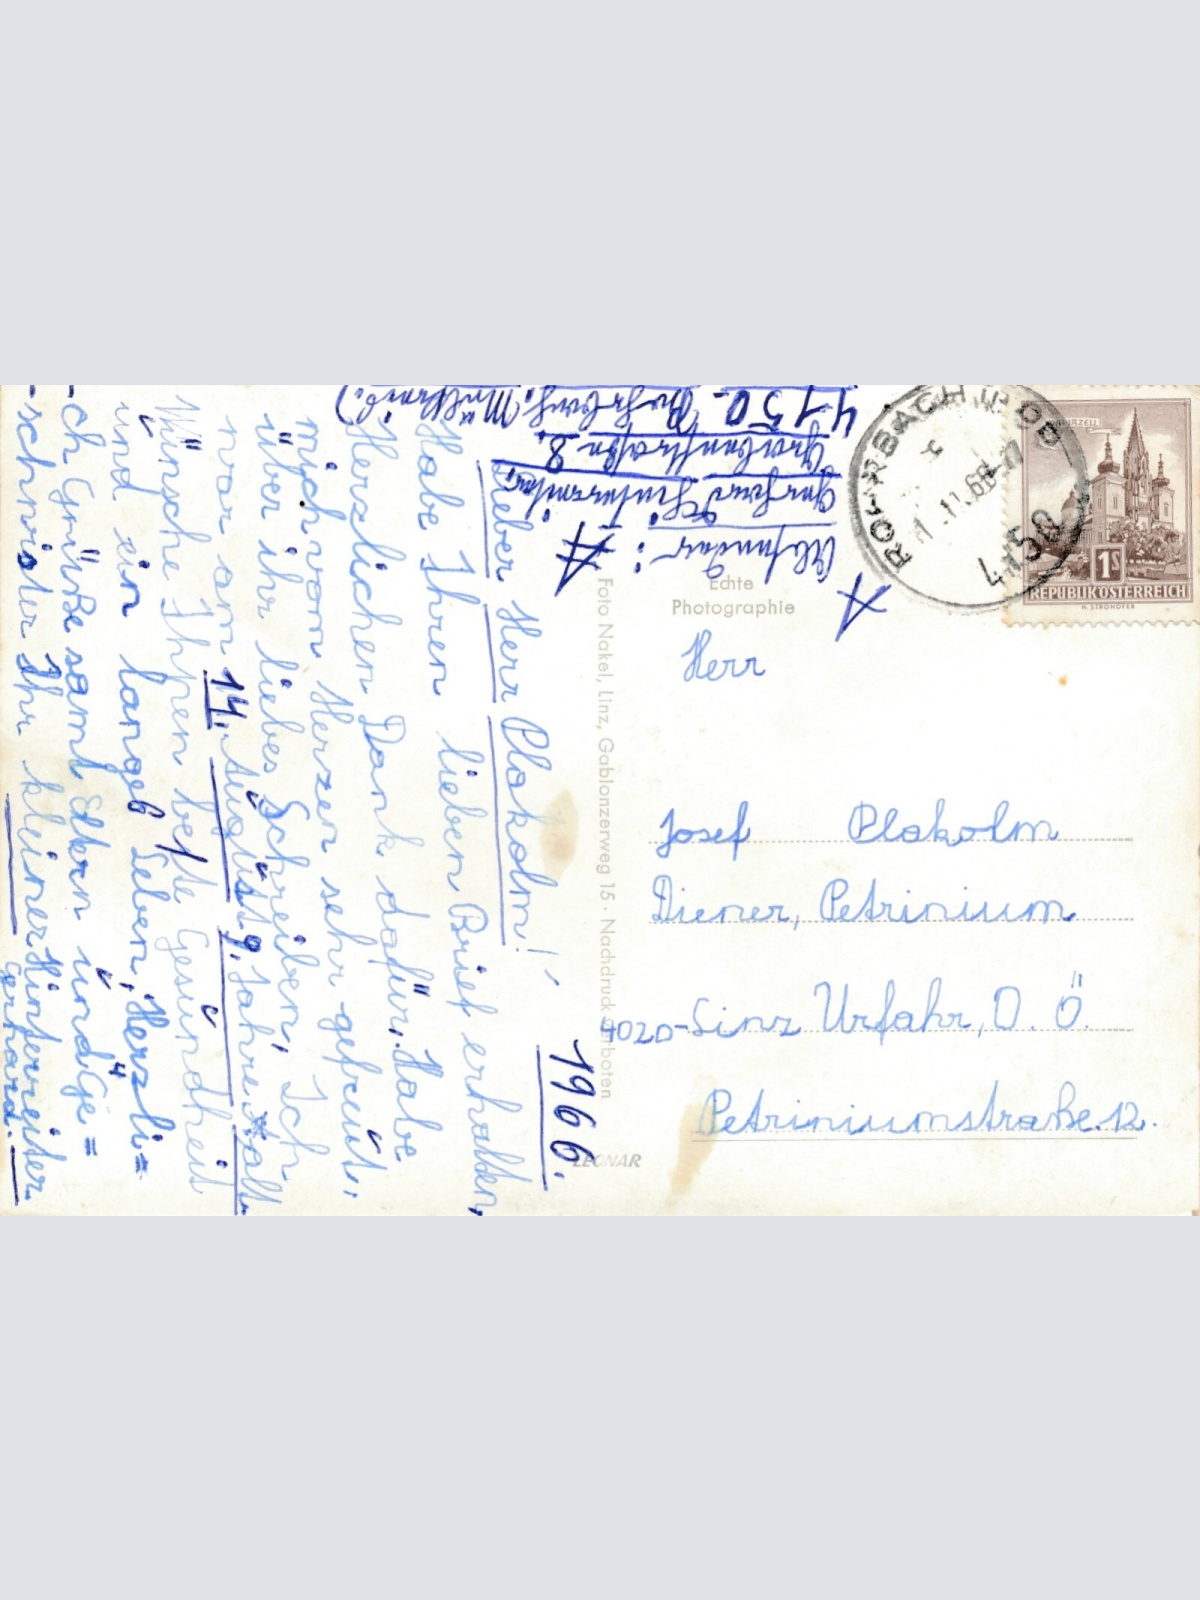 1966.
Lieber Herr Plakolm!
Habe Ihren lieben Brief erhalten,
Herzlichen Dank dafür. Habe
mich vom Herzen sehr gefreut.
über ihr liebes Schreiben, Ich
war am 14. August 9. Jahre alt.
Wünsche Ihnen beste Gesundheit
und ein langes Leben, Herzli=
ch Grüße samt Eltern und Ge=
schwister Ihr kleiner Hinterreiter
Gerhard.
A
Absender:
Gerhard Hinterreiter,
Grabenstraße 8.
4150- Rohrbach,
(Mühlkreis.)
A
Echte
Photographie
Foto Nakel, Linz, Gablonzerweg 15 · Nachdruck verboten
LEONAR
ROHRBACH IN OÖ
11.66
4150
MARIAZELL
1 S
REPUBLIK ÖSTERREICH
H. STROHOFER
Herr
Josef Plakolm
Diener, Petrinium
4020-Linz Urfahr, O. Ö.
Petriniumstraße. 12.